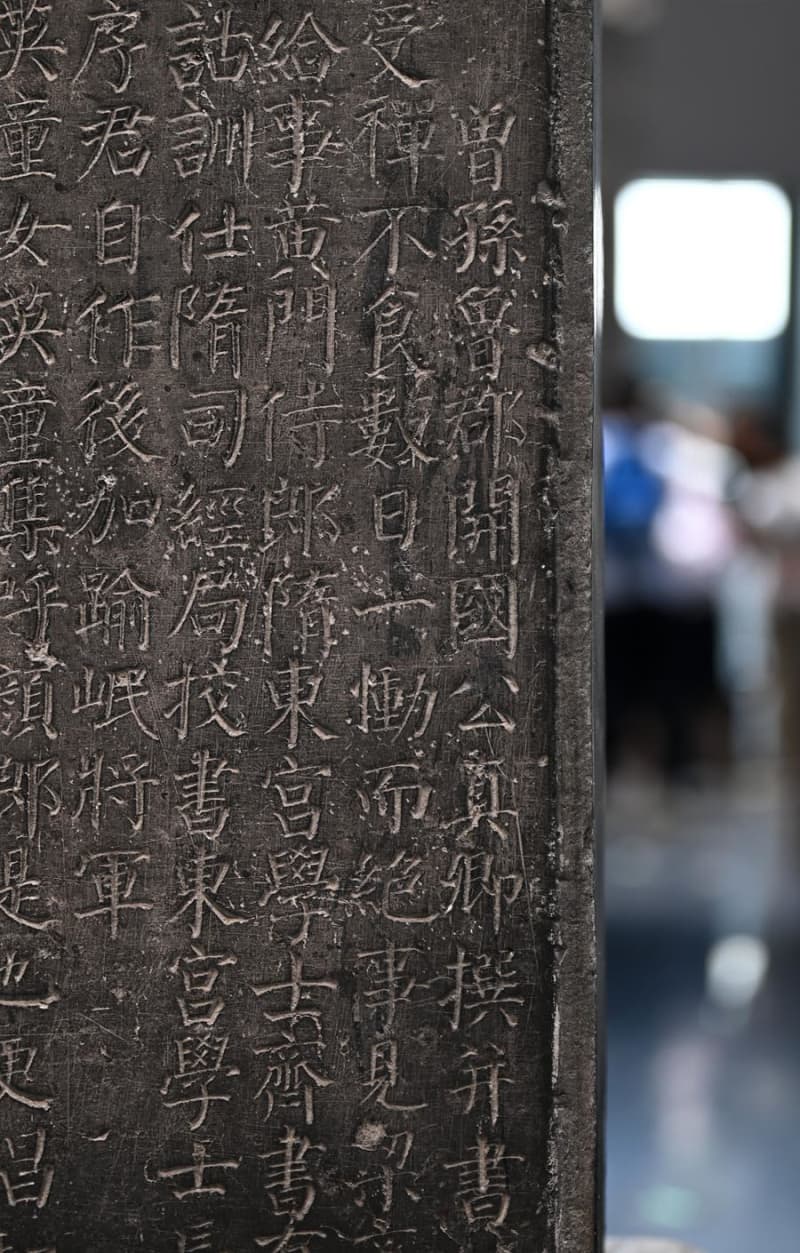 曾孫曾郡開國公真卿撰并書
受禪不食數日一慟而絕事見梁
給事黃門侍郎隋東宮學士齊書有
詁訓仕隋司經局挍書東宮學士長
序君自作後加踰岷將軍
英童女英童集呼顏郎是也更昌